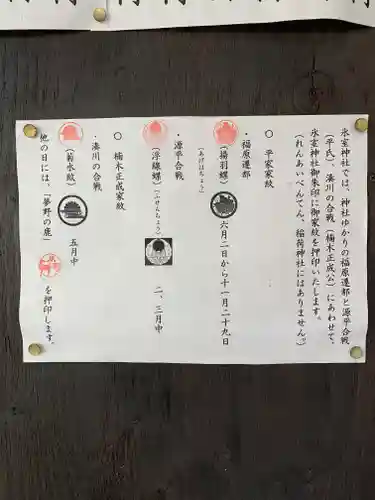 氷室神社では、神社ゆかりの福原遷都と源平合戦
(平氏)、湊川の合戦(楠木正成公)にあわせて、
氷室神社御朱印に御家紋を押印いたします。
(れんあいべんてん、稲荷神社にはありません。)
〇 平家家紋
・福原遷都
(揚羽蝶) 六月二日から十一月二十九日
(あげはちょう)
・源平合戦
(浮線蝶)(ふせんちょう) 二、三月中
〇 楠木正成家紋
・湊川の合戦
(菊水紋) 五月中
他の日には、「夢野の鹿」 を押印します。